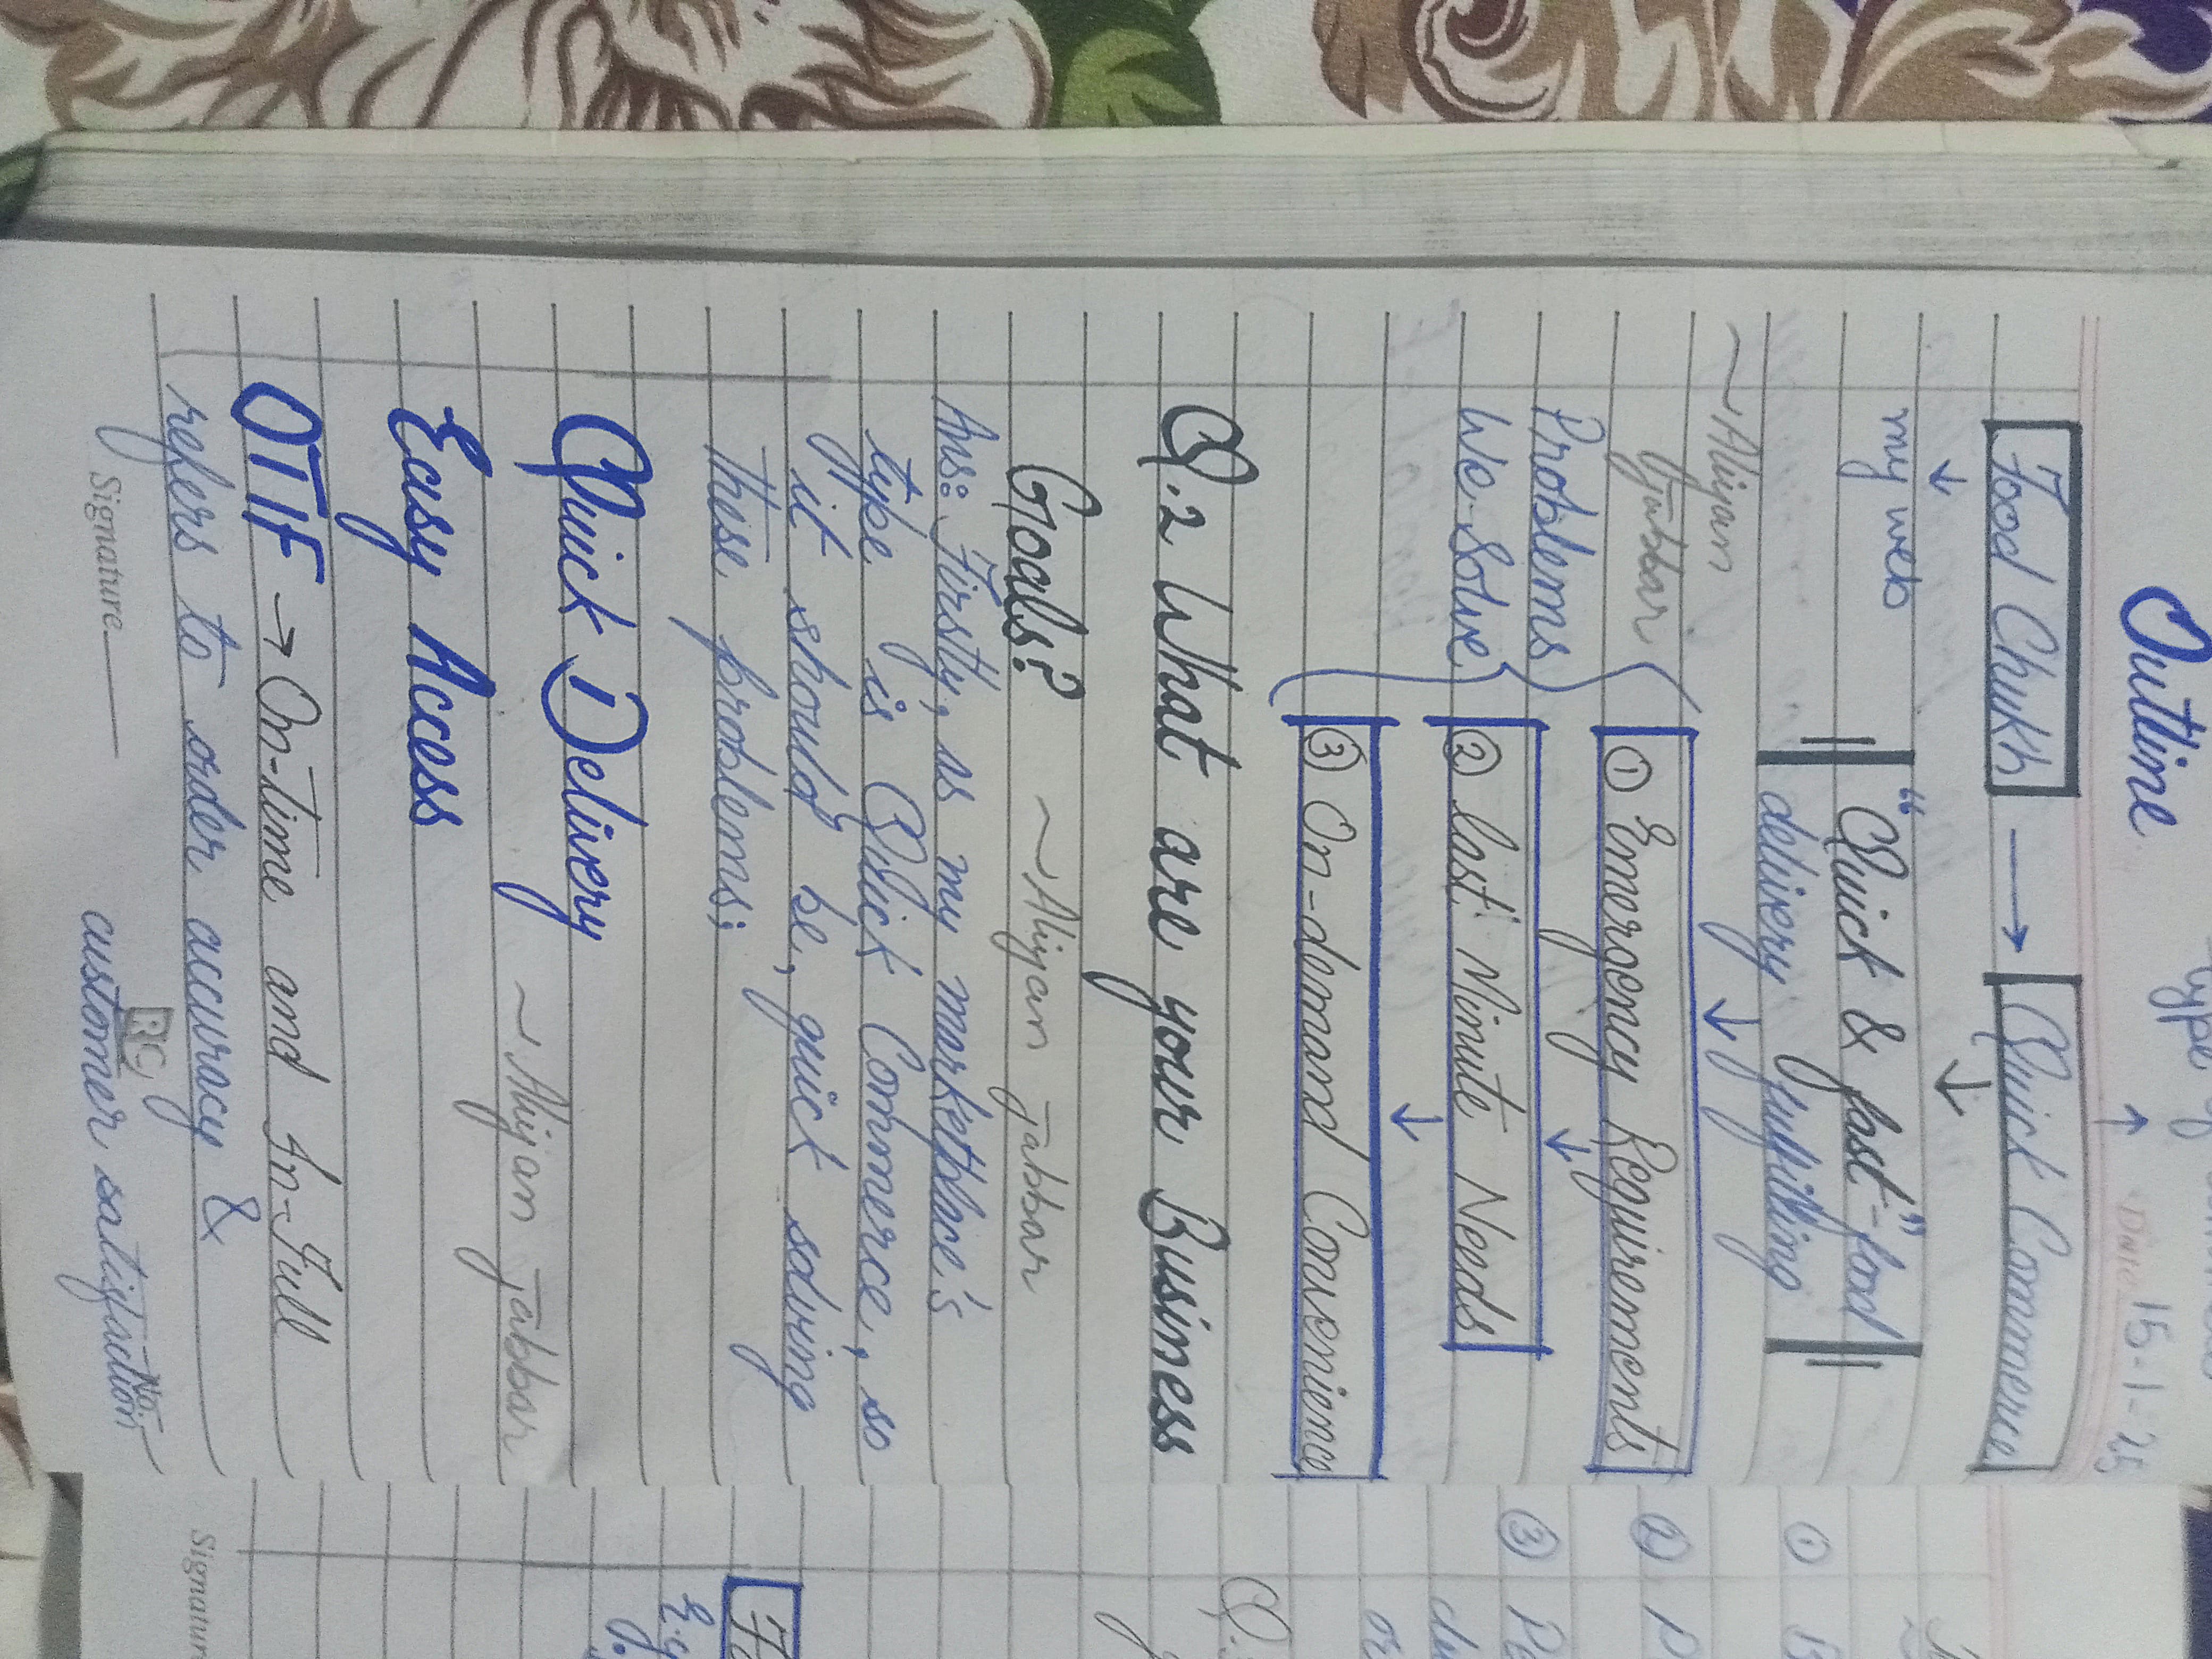 Outline
type of
Date 15-1-25
Food Chukh → Quick Commerce
my web
"Quick & fast"-food
delivery fulfilling
~Aliyan
Jabbar
Problems
We Solve
① Emergency Requirements
② last Minute Needs
③ On-demand Convenience
Q.2 What are your Business
Goals? ~Aliyan Jabbar
Ans: Firstly, as my marketplace's
type is Quick Commerce, so
it should be, quick solving
these problems;
Quick Delivery
~Aliyan Jabbar
Easy Access
OTIF → On-time and In-Full
refers to order accuracy &
customer satisfaction
RC
No.
Signature
①
②
③
E.g
Signature